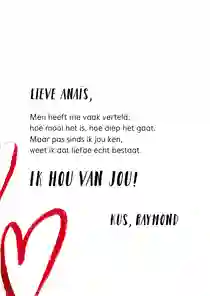 LIEVE ANAÏS,
Men heeft me vaak verteld:
hoe mooi het is, hoe diep het gaat.
Maar pas sinds ik jou ken,
weet ik dat liefde echt bestaat.
IK HOU VAN JOU!
KUS, RAYMOND